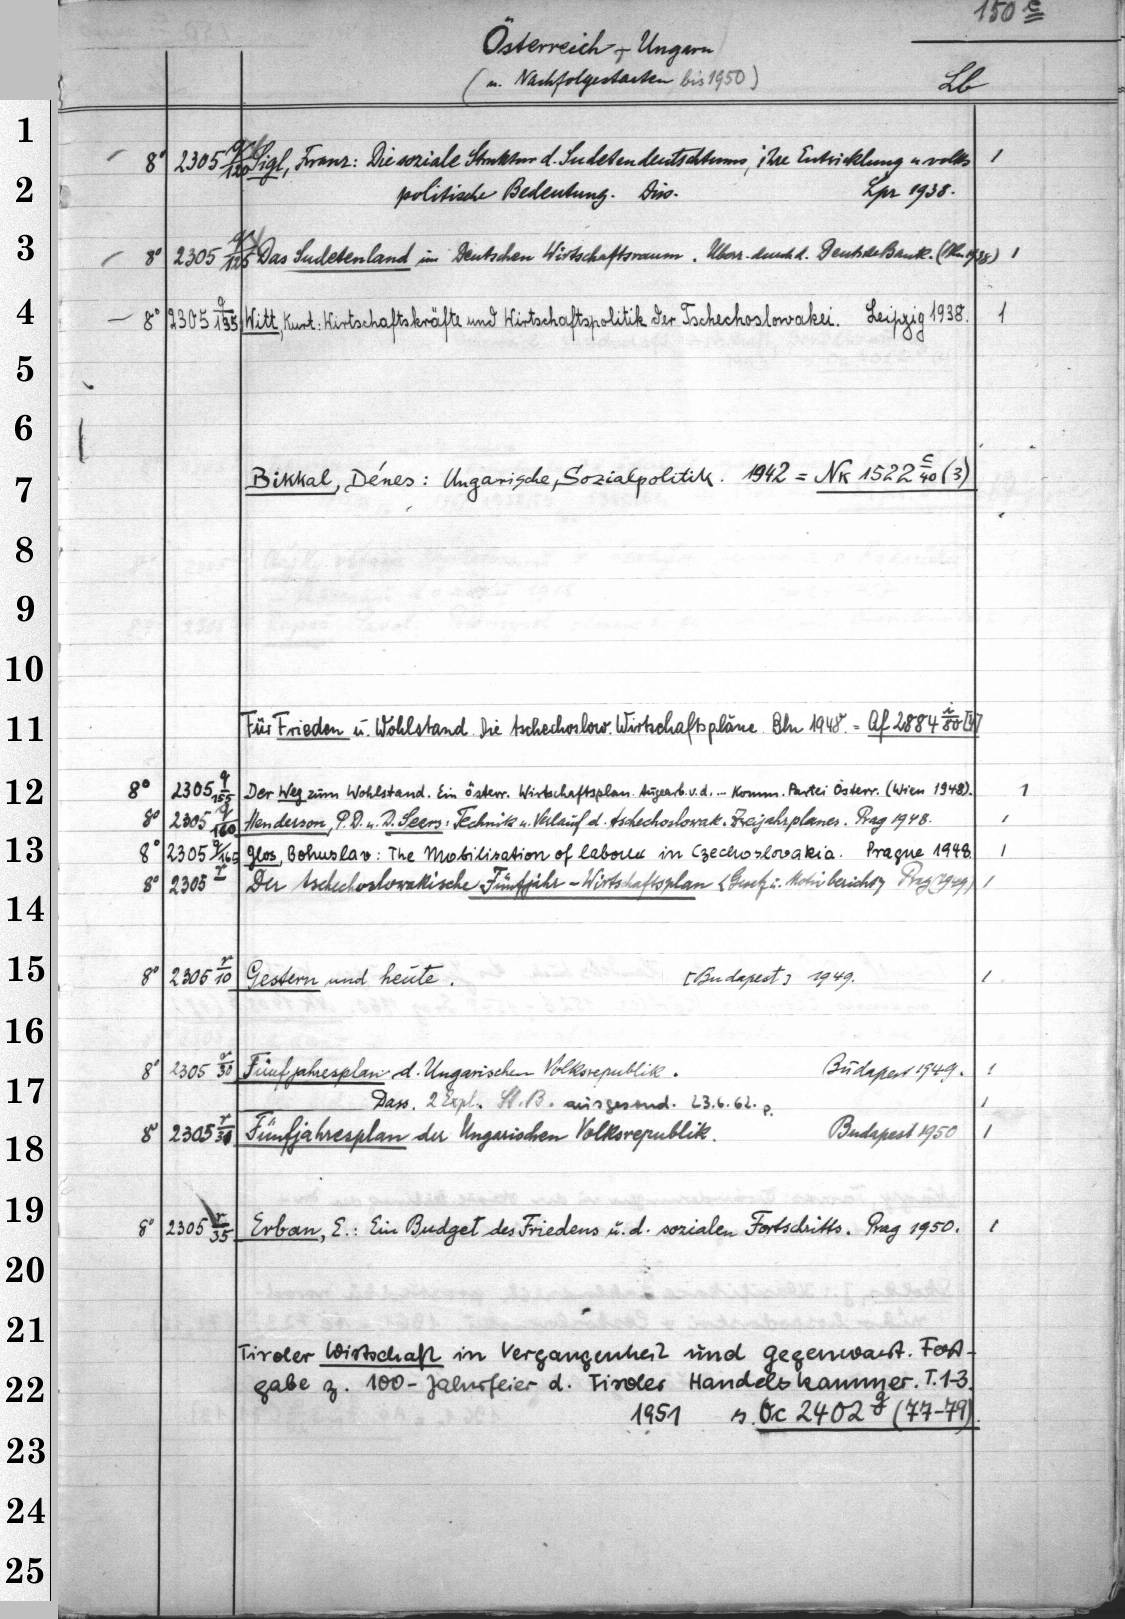 150 c
Österreich + Ungarn
(u. Nachfolgestaaten bis 1950)
Lb
1
8° 2305 q/120 Sigl, Franz: Die soziale Struktur d. Sudetendeutschtums, ihre Entwicklung u. volks 1
2
politische Bedeutung. Diss. Lpz 1938.
3
8° 2305 q/125 Das Sudetenland im Deutschen Wirtschaftsraum. Überr. durch d. Deutsche Bank. (Bln. 1938) 1
4
8° 2305 q/135 Witt, Kurt: Wirtschaftskräfte und Wirtschaftspolitik der Tschechoslowakei. Leipzig 1938. 1
5
6
7
Bikkal, Dénes: Ungarische Sozialpolitik. 1942 = Nk 1522 c/40 (3)
8
9
10
11
Für Frieden u. Wohlstand. Die tschechoslow. Wirtschaftspläne. Bln 1948. = Af 2884 i/80
12
8° 2305 q/155 Der Weg zum Wohlstand. Ein österr. Wirtschaftsplan. Ausgearb. v. d. – Komm. Partei Österr. (Wien 1948). 1
8° 2305 q/160 Henderson, P.D. u. D. Seers: Technik u. Verlauf d. tschechoslowak. Zweijahrplanes. Prag 1948. 1
13
8° 2305 q/165 Glos, Bohuslav: The Mobilisation of labour in Czechoslovakia. Prague 1948 1
8° 2305 r Der tschechoslowakische Fünfjahr-Wirtschaftsplan <Gesetz u. Motivbericht> Prag (1949) 1
14
15
8° 2305 r/10 Gestern und heute. [Budapest] 1949. 1
16
17
8° 2305 r/30 Fünfjahresplan d. Ungarischen Volksrepublik. Budapest 1949. 1
Dass. 2 Expl. St. B. ausgesond. 23.6.62. p. 1
18
8° 2305 r/31 Fünfjahresplan der Ungarischen Volksrepublik. Budapest 1950 1
19
8° 2305 r/35 Erban, E.: Ein Budget des Friedens u. d. sozialen Fortschritts. Prag 1950. 1
20
21
Tiroler Wirtschaft in Vergangenheit und Gegenwart. Fest-
22
gabe z. 100-Jahrfeier d. Tiroler Handelskammer. T. 1-3.
1951 s. Oc 2402 g (77-79).
23
24
25